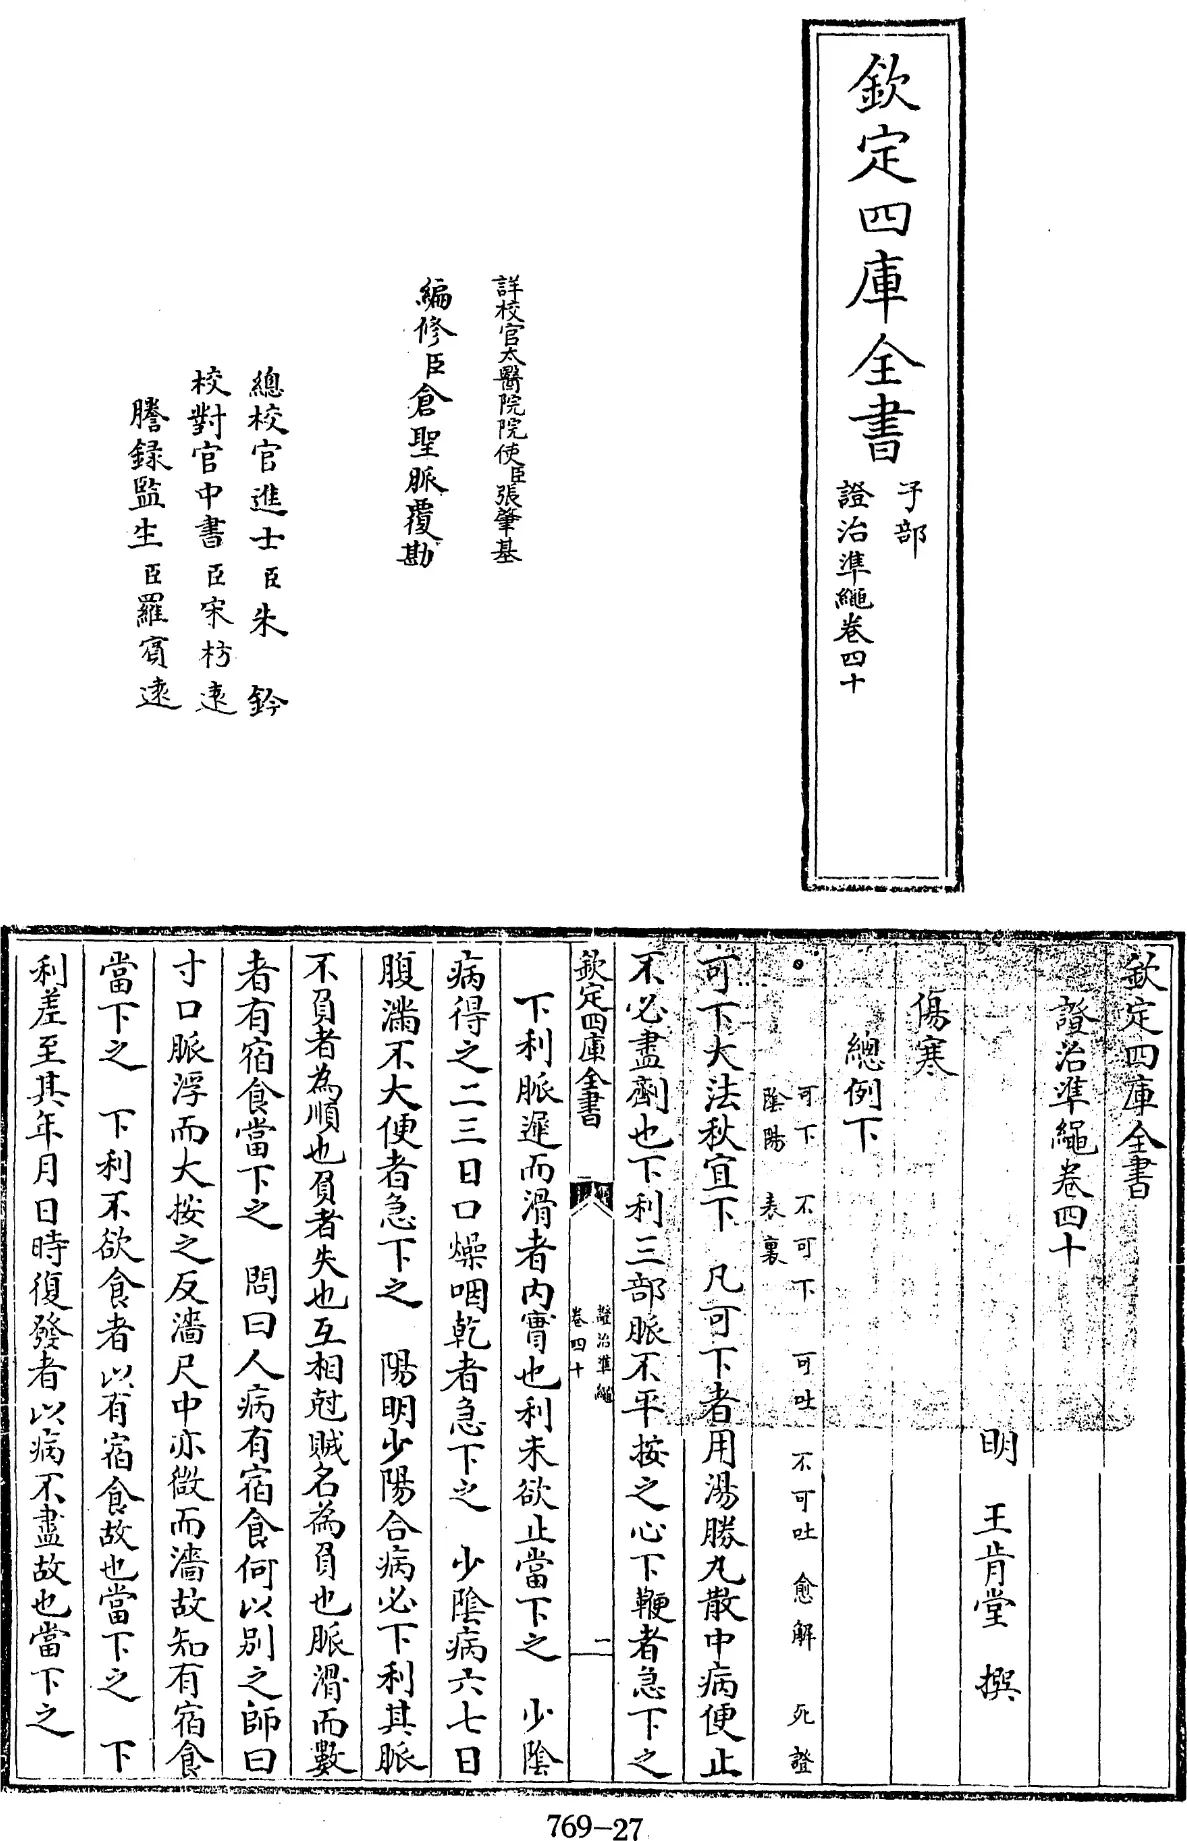 欽定四庫全書
子部
證治準繩卷四十
詳校官太醫院院使臣張肇基
編修臣倉聖脈覆勘
總校官進士臣朱鈐
校對官中書臣宋枋遠
謄錄監生臣羅賓遠
欽定四庫全書
證治準繩卷四十
明 王肯堂 撰
傷寒
總例下
可下 不可下 可吐 不可吐 愈解 死證
陰陽 表裏
可下大法秋宜下 凡可下者用湯勝丸散中病便止
不必盡劑也下利三部脈不平按之心下鞕者急下之
欽定四庫全書
證治準繩
卷四十
二
下利脈遲而滑者內實也利未欲止當下之 少陰
病得之二三日口燥咽乾者急下之 少陰病六七日
腹滿不大便者急下之 陽明少陽合病必下利其脈
不負者為順也負者失也互相尅賊名為負也脈滑而數
者有宿食當下之 問曰人病有宿食何以別之師曰
寸口脈浮而大按之反濇尺中亦微而濇故知有宿食
當下之 下利不欲食者以有宿食故也當下之 下
利差至其年月日時復發者以病不盡故也當下之
769-27